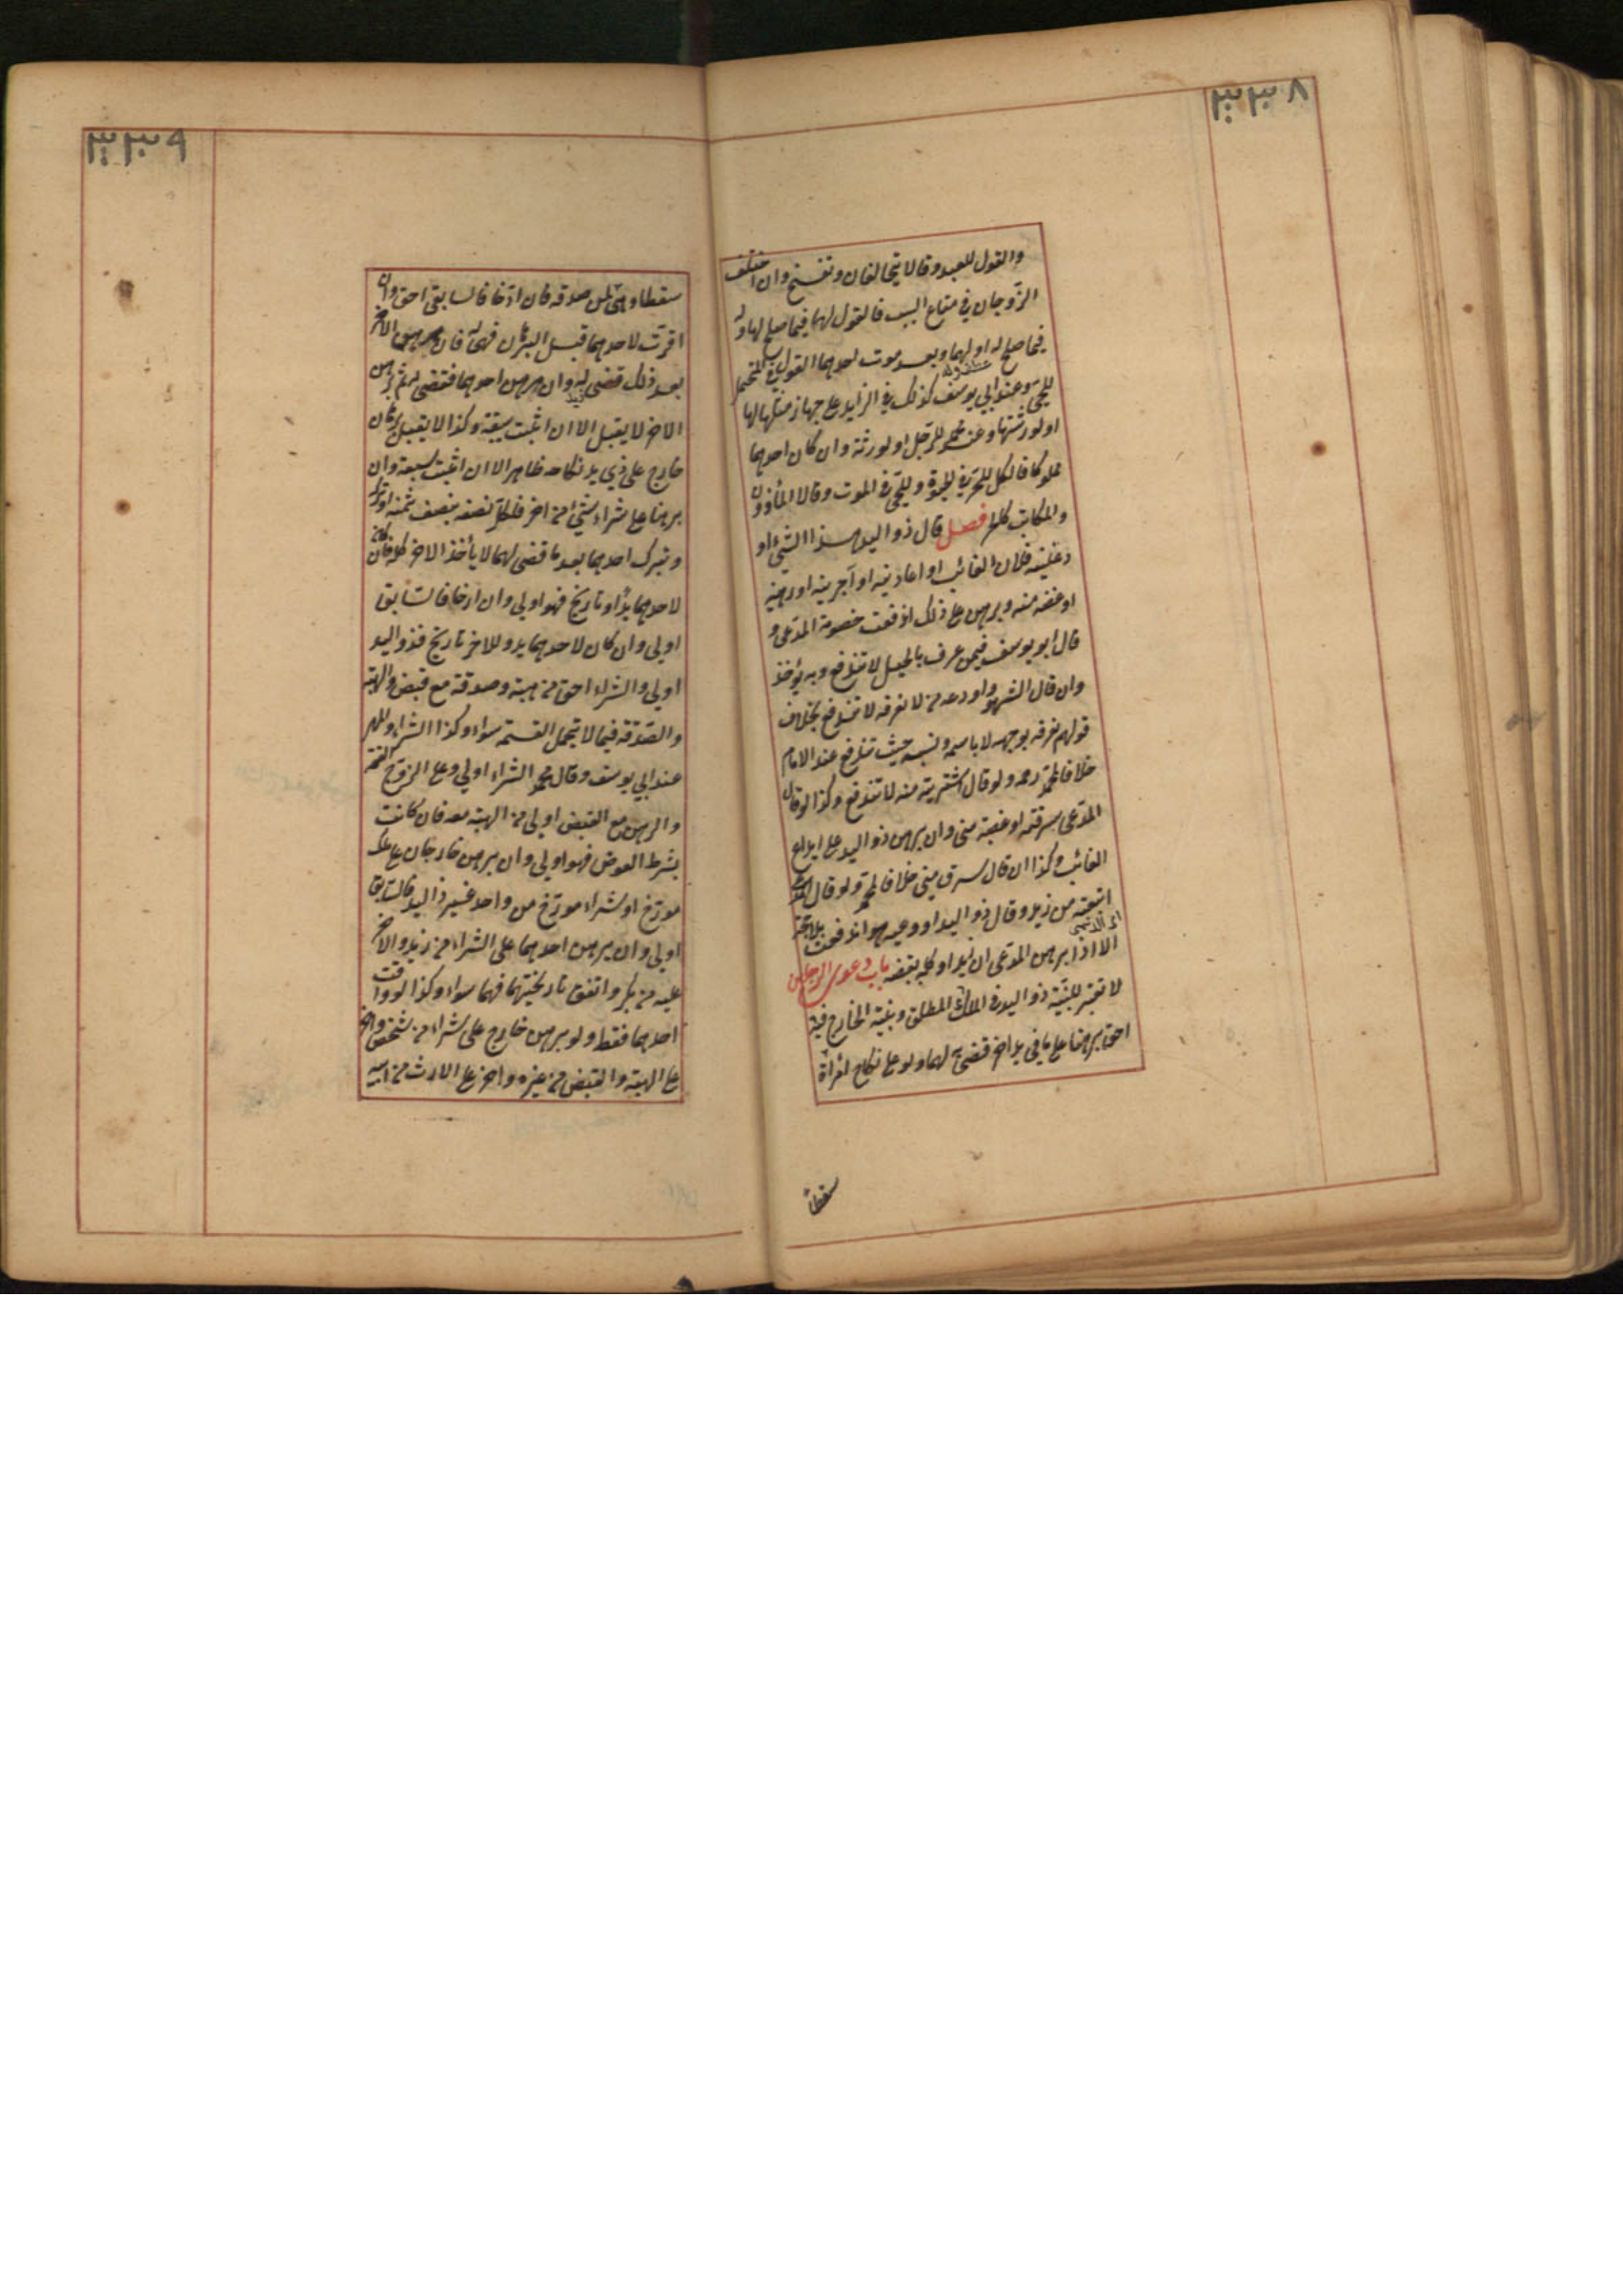 ٣٣٨
والقول للعبد وقالا يتحالفان وتفسخ وان اختلف
الزوجان في متاع البيت فالقول لها فيما صلح لها وله
فيما صلح له او لهما وبعد موت احدهما القول في المحتمل
للحي وعند ابي يوسف كذلك في الزايد على جهاز مثلها لها
او لورثتها وعند محمد للرجل او لورثته وان كان احدهما
مملوكا فالكل للحر في الحيوة وللحي في الموت وقالا المأذون
والمكاتب كالحر فصل قال ذو اليد هذا الشيء او
دعنيه فلان الغائب او اعارنيه او آجرنيه او رهنيه
او غصبته منه وبرهن على ذلك اندفعت خصومة المدعي و
قال ابو يوسف فيمن عرف بالحيل لا تندفع وبه يؤخذ
وان قال الشهود اودعه من لا نعرفه لا تندفع بخلاف
قولهم نعرفه بوجهه لا باسمه ونسبه حيث تندفع عند الامام
خلافا لمحمد رحمه ولو قال اشتريته منه لا تندفع وكذا لو قال
المدعي سرقته او غصبته مني وان برهن ذو اليد على ايداع
الغائب وكذا ان قال سرق مني خلافا لمحمد ولو قال المدعي
ابتعته من زيد وقال ذو اليد اودعنيه هو اندفعت بلا حجة
الا اذا برهن المدعي ان زيدا وكله بقبضه باب دعوى الرجلين
لا تعتبر بينة ذو اليد في الملك المطلق وبينة الخارج فيه
احق برهنا على ما في يد اخر قضي به لهما ولو على نكاح امرأة
سقطا
٣٣٩
سقطا وهي لمن صدقه فان ارخا فالسابق احق وان
اقرت لاحدهما قبل البرهان فهي له فان برهن الاخر
بعد ذلك قضي له وان برهن احدهما فقضي له ثم برهن
الاخر لا يقبل الا ان اثبت سبقه وكذا لا يقبل برهان
خارج على ذي يد نكاحه ظاهر الا ان اثبت سبقه وان
برهنا على شراء شيء من اخر فلكل نصفه بنصف ثمنه او تركه
وبترك احدهما بعد ما قضي لهما لا يأخذ الاخر كله فان كان
لاحدهما يد او تاريخ فهو اولى وان ارخا فالسابق
اولى وان كان لاحدهما يد وللاخر تاريخ فذو اليد
اولى والشراء احق من هبة وصدقة مع قبض والهبة
والصدقة فيما لا يحتمل القسمة سواء وكذا الشراء والمهر
عند ابي يوسف وقال محمد الشراء اولى وعلى الزوج القيمة
والرهن مع القبض اولى من الهبة معه فان كانت
بشرط العوض فهو اولى وان برهن خارجان على ملك
مورخ او شراء مورخ من واحد غير ذي اليد فالسابق
اولى وان برهن احدهما على الشراء من زيد والاخر
عليه من بكر واتفق تاريخهما فهما سواء وكذا لو وقت
احدهما فقط ولو برهن خارج على شراء من شخص واخر
على الهبة والقبض من غيره واخر على الارث من ابيه